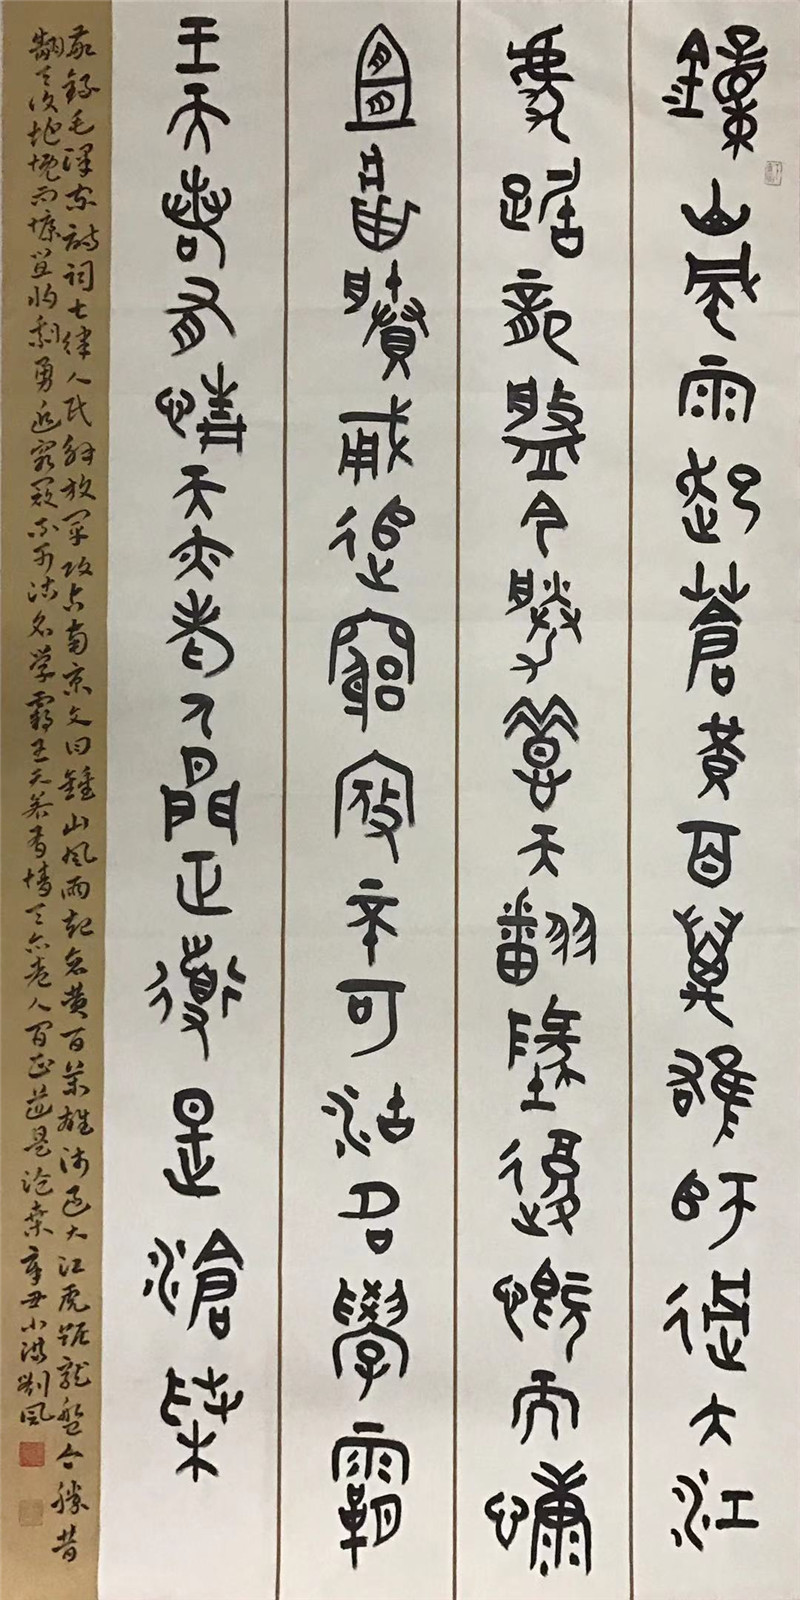 鐘山風雨起蒼黄百萬雄師過大江
虎踞龍盤今勝昔天翻墬覆慨而慷
宜將剩勇追窮寇不可沽名學霸
王天若有情天亦老人間正道是滄桑
敬錄毛澤东詩詞七律人民解放军攻占南京文曰鐘山風雨起蒼黄百萬雄师过大江虎踞龍盤今勝昔
翻天復地慨而慷宜將剩勇追窮寇不可沽名学霸王天若有情天亦老人間正道是滄桑辛丑小满劉風